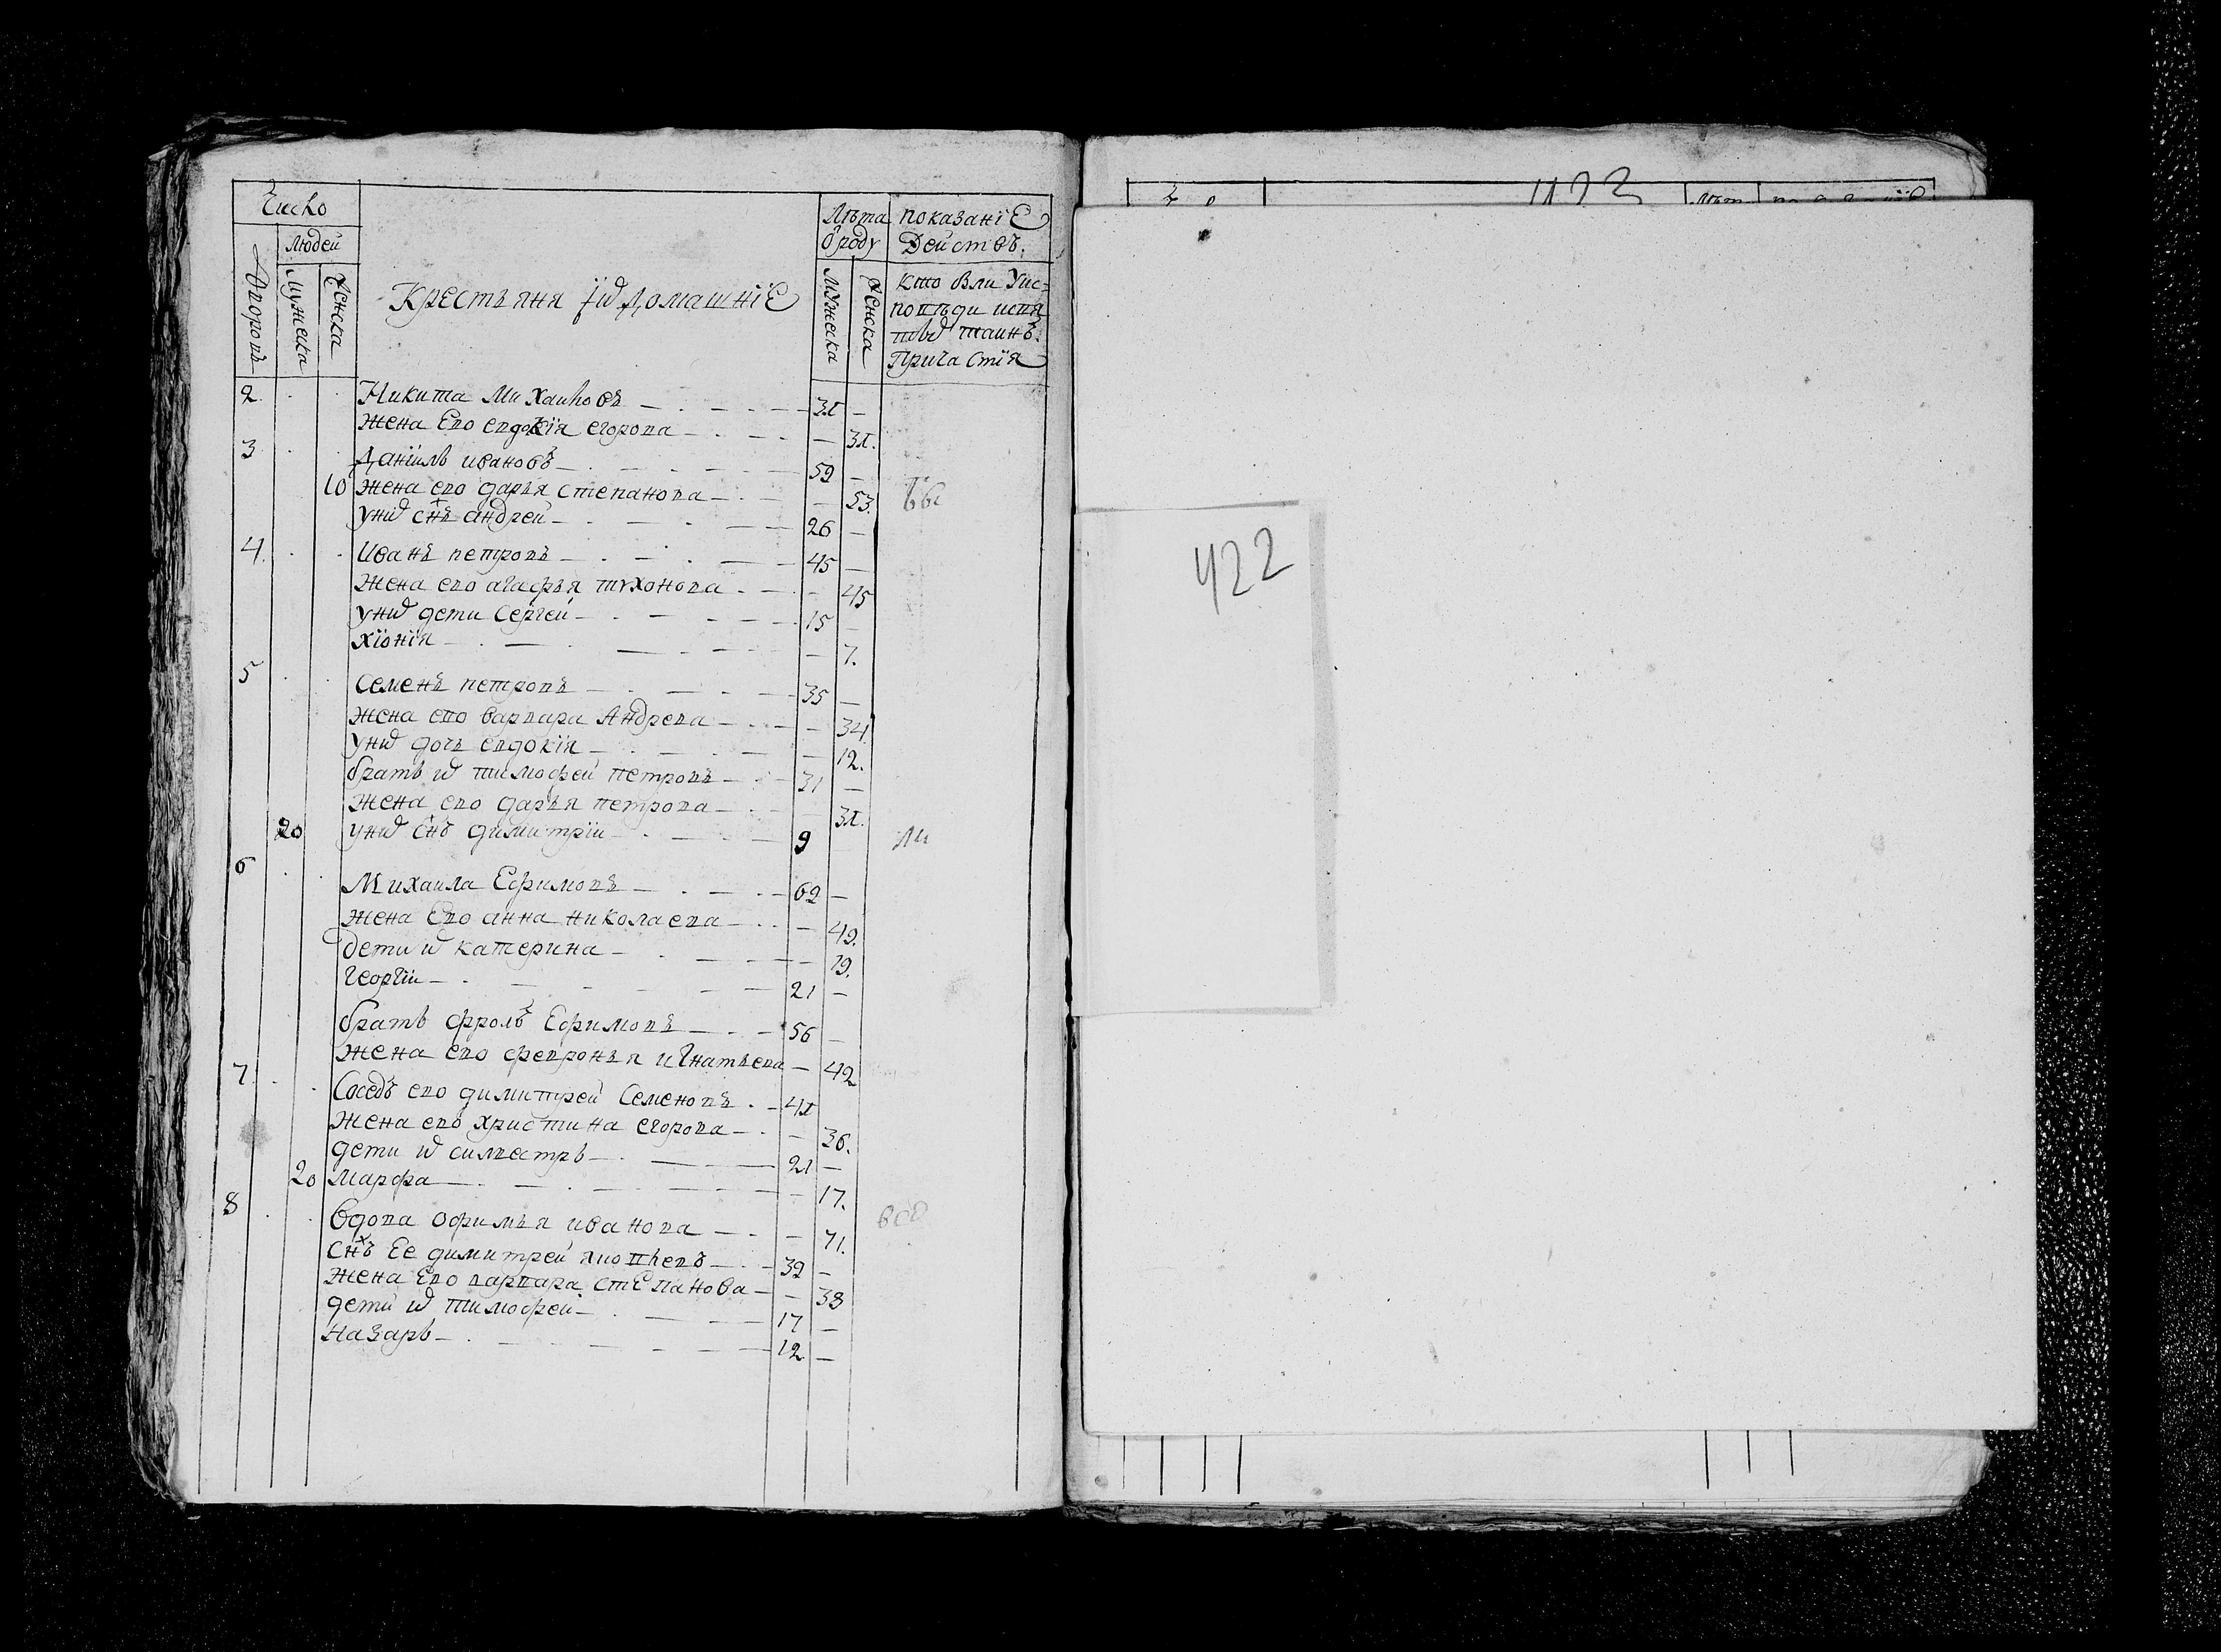 Число
Людей
Дворовъ
Мужеска
Женска
Крестьяня
домашніе
Лѣта
ѿроду
Мужеска
Женска
показаніе
Действъ.
кто Были Уис=
поведи
таинъ.
Причастия
2 Никита Михаиловъ 30
жена ево евдокія егорова 30.
3 Даніилъ ивановъ 59
10 жена ево дарья степанова 53.
унихъ снъ андрей 26
4 Иванъ петровъ 45
жена ево агафья тихонова 45
унихъ дети Сергей 15
хіонія 7.
5 Семенъ петровъ 35
жена ево варвара Андрева 34
унихъ дочь евдокія 12.
братъ ихъ тимофей петровъ 31
жена ево дарья петрова 30.
20 унихъ снъ димитрій 9 ли
6 Михаила Ефимовъ 62
жена Ево анна николаева 49.
дети ихъ катерина 19.
георгій 21
братъ фролъ Ефимовъ 56
жена ево февронья игнатьева 42
7 Соседъ ево димитрей Семеновъ 40
жена ево христина егорова 36.
дети ихъ силвестръ 21
20 марфа 17.
8 вдова офимья иванова 71.
снъ Ее димитрей 39
жена Ево варвара стЕпанова 38
дети ихъ тимофей 17
назаръ 12
422